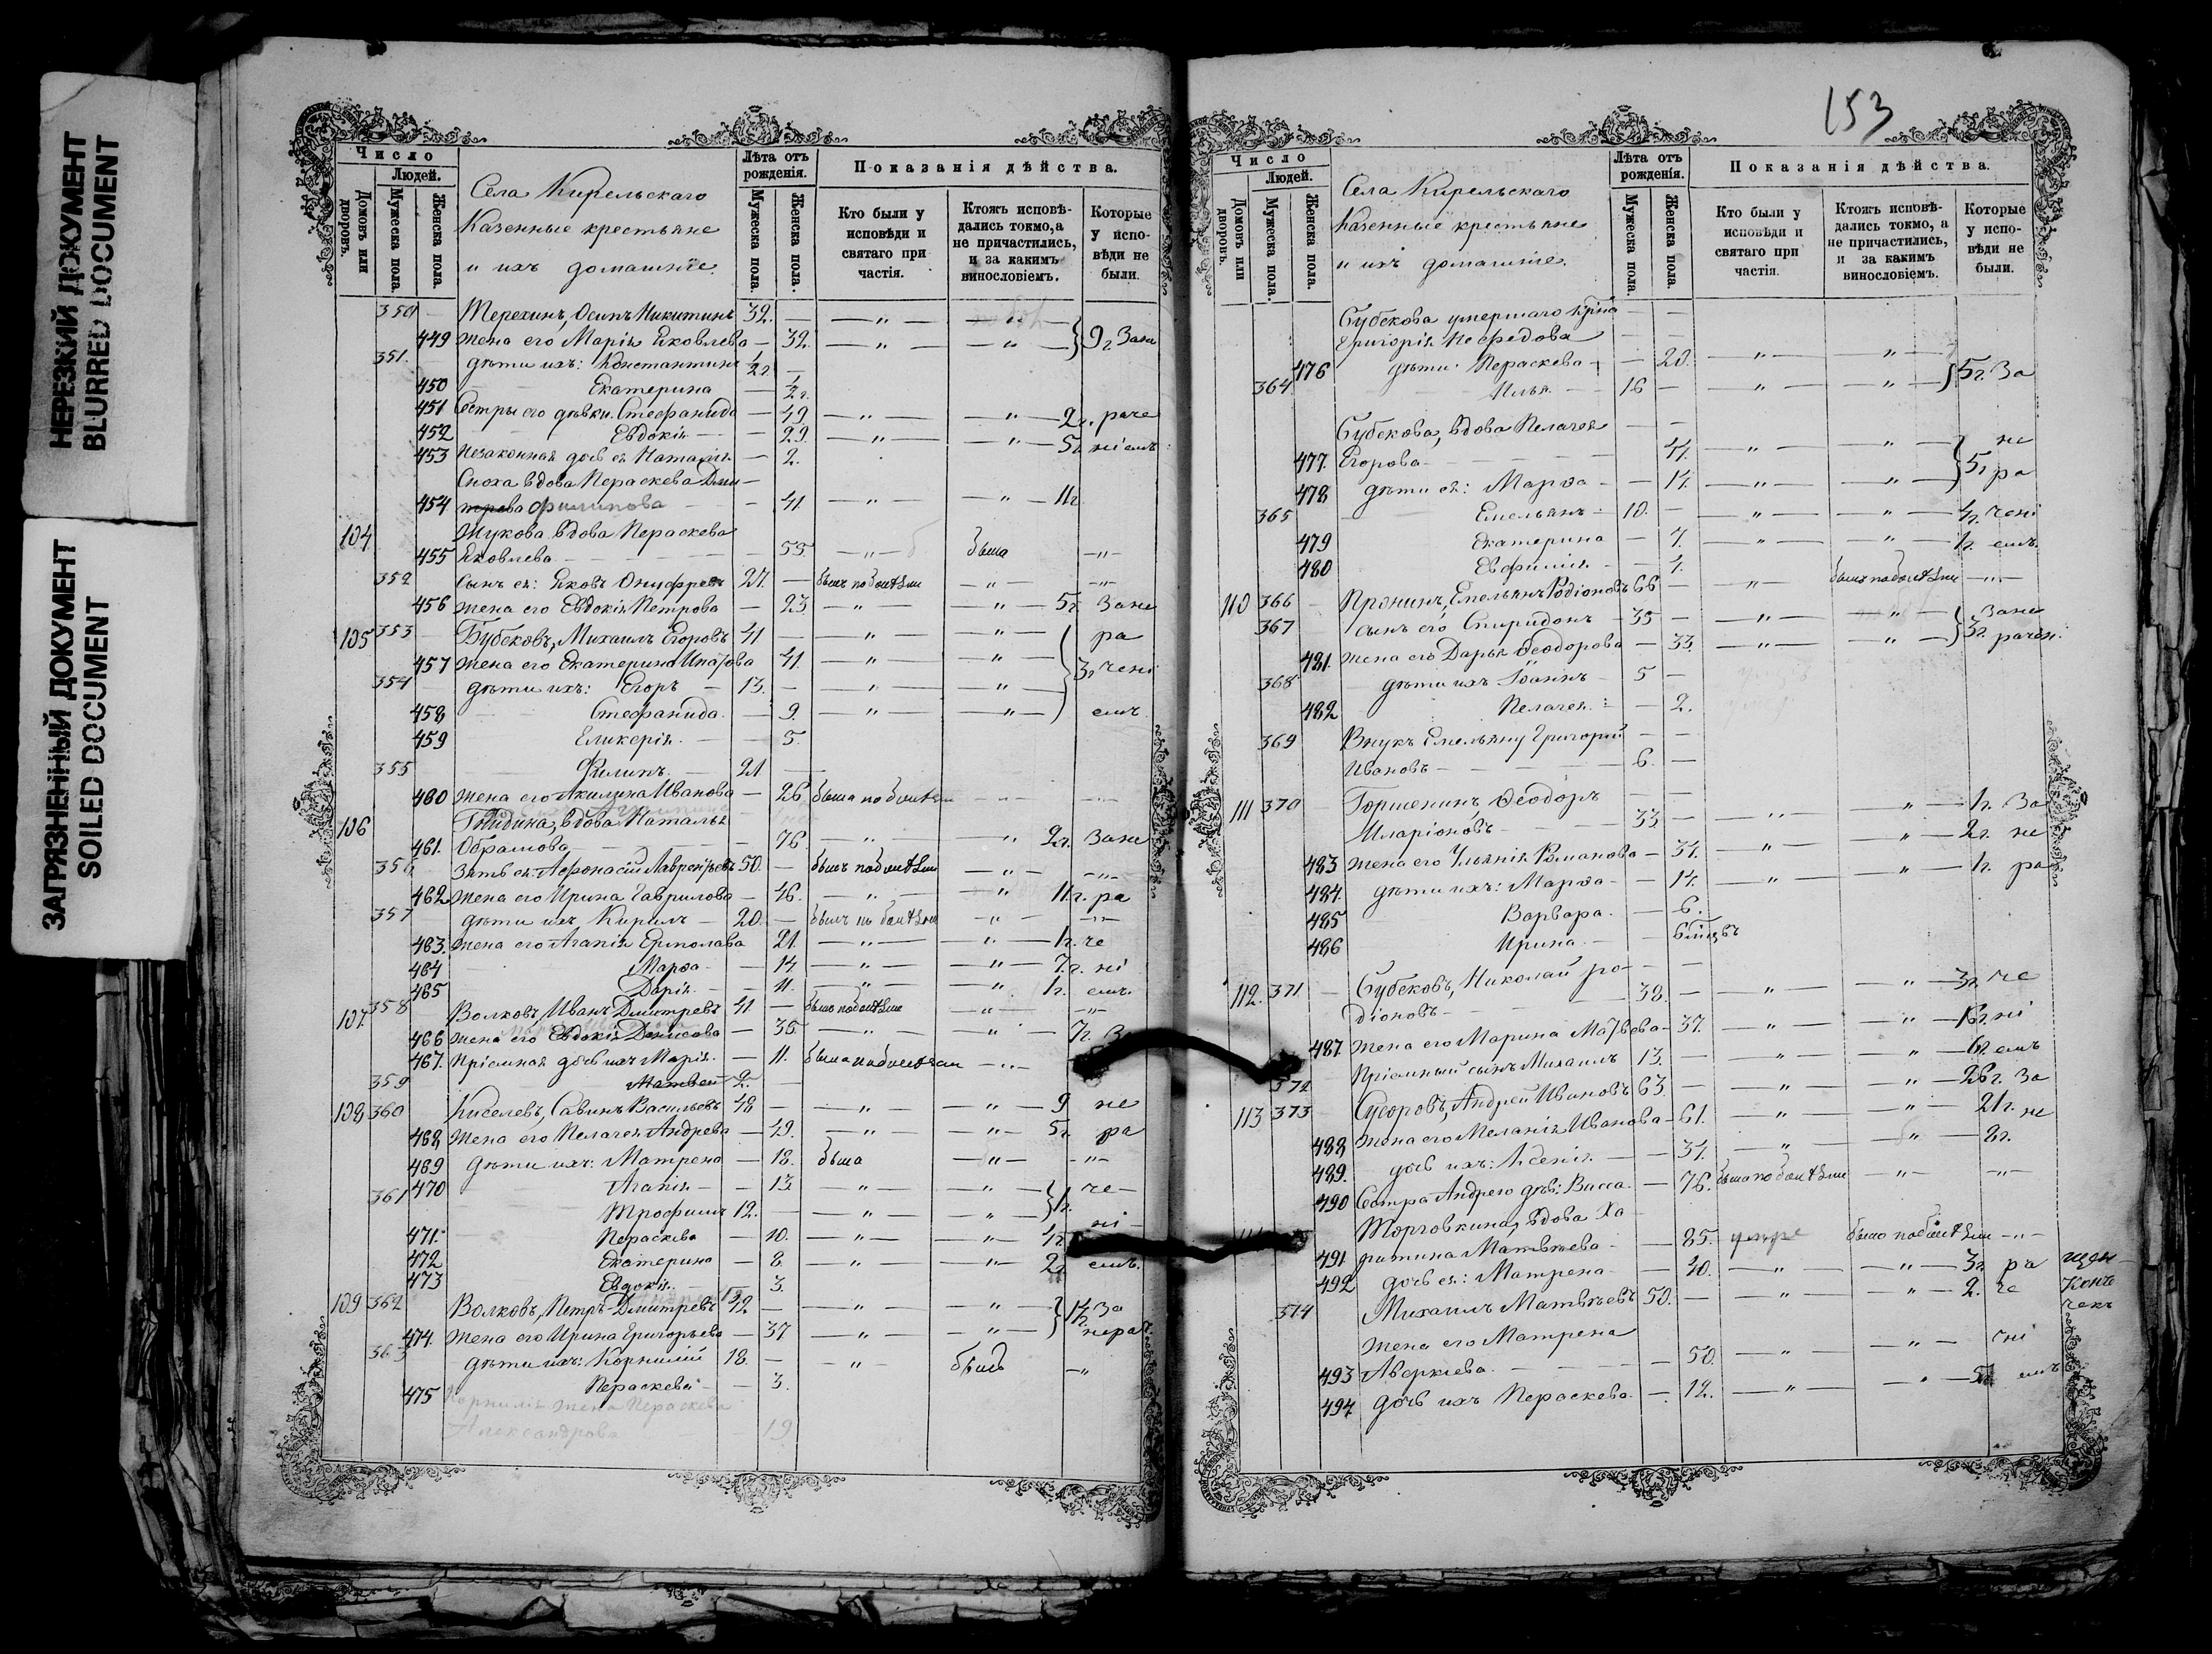 НЕРЕЗКИЙ ДОКУМЕНТ
BLURRED DOCUMENT
ЗАГРЯЗНЕННЫЙ ДОКУМЕНТ
SOILED DOCUMENT
Число
Людей.
Домовъ или дворовъ.
Мужеска пола.
Женска пола.
Села Кирельскаго
Казенные крестьяне
и ихъ домашніе.
Лѣта отъ рожденія.
Мужеска пола.
Женска пола.
Показанія дѣйства.
Кто были у исповѣди и святаго при частія.
Ктожъ исповѣдались токмо, а не причастились, и за какимъ винословіемъ.
Которые у исповѣди не были.
350 Терехинъ, Осипъ Никитинъ 32. — " — — " —
449 жена его Марія Яковлева — 32. — " — — " — } 9 г. Зане
351. дѣти ихъ: Константинъ 1/2 г —
450 Екатерина — 1/2 г.
451 Сестры его дѣвки. Стефанида — 49. — " — — " — 2 г. раче
452 Евдокія — 29. — " — — " — 5 г. ніемъ
453 Незаконная дочь ея Наталія — 2.
Сноха вдова Пераскева Дми —
454 трева Филипова — 41. — " — — " — 11 г
104 Жукова вдова Пераскева
455 Яковлева — 55 — " — была — " —
352 Сынъ ея: Яковъ Онуфревъ 27. — былъ по болѣзни — " — — " —
456 жена его Евдокія Петрова — 23 — " — — " — 5 г. Зане
105 353 Бубековъ, Михаилъ Егоровъ 41 — — " — — " — ра
457 жена его Екатерина Ипатова 41. — " — — " — 3 г чені
354 дѣти ихъ: Егоръ — 13. — — " — — " —
458 Стефанида — 9. — " — — " — емъ
459 Гликерія — 5.
355 Филипъ — 21 —
460 жена его Акилина Иванова — 26 была по болѣзни — " — — " —
106 вдова Наталья
461. Обрамова — 76 — " — " 2 г. Зане
356 Зять ея: Афонасій Лаврентьевъ 50. — былъ по болѣзни — " — — " —
462 жена его Ирина Гаврилова — 46. — " — " 11 г. ра
357 дѣти ихъ Кирилъ — 20. — былъ по болѣзни — " — — " —
463. жена его Агапія Ермолава 21. — " — — " — 1 г. че
464 Марѳа — 14 — " — — " — 7 г. ні
465 Дарія — 11. — " — " 1 г. емъ
107. 358 Волковъ, Иванъ Дмитревъ 41. — было по болѣзни — " — — " —
466 жена его Евдокія Денисова — 36. — " — — " — 7 г.
467. Пріемная дочь ихъ Марія — 11. была по болѣзни — " —
359 Матвей 2. —
108 360 Киселевъ, Савинъ Васильевъ 48 — — " — — " — 9 не
468 жена его Пелагея Андрева — 49. — " — — " — 5 г. ра
469 дѣти ихъ: Матрена — 18. была — " — — " —
470 Агапія — 13. — " — — " — че
361 Трофимъ 12. — — " — — " — 1 г. ні
471. Пераскева — 10. — " — — " — 1 г.
472 Екатерина — 8. — " — — " — 2 г емъ.
473 Евдокія — 3.
109 362 Волковъ, Петръ Дмитревъ 42 — — " — — " — 1 г. За
474. жена его Ирина Григорьева — 37 — " — — " — нерач.
363 дѣти ихъ: Корнилій 18. — — " — былъ — "
475 Пераскева — 3.
Корнилія жена Пераскева
Александрова 19
153
Число
Людей.
Домовъ или дворовъ.
Мужеска пола.
Женска пола.
Села Кирельскаго
Казенные крестьяне
и ихъ домашніе.
Лѣта отъ рожденія.
Мужеска пола.
Женска пола.
Показанія дѣйства.
Кто были у исповѣди и святаго при частія.
Ктожъ исповѣдались токмо, а не причастились, и за какимъ винословіемъ.
Которые у исповѣди не были.
Бубекова умершаго — —
Григорія Мефедова — —
476 дѣти: Пераскева — 20. — " — " —
364 Илья — 16 — — " — — " — } 5 г. За
Бубекова, вдова Пелагея — —
477. Егорова — 44. — " — " — не
478 дѣти ея: Марѳа — 14. — " — — " — 5 г ра
365 Емельянъ — 10. — — " — — " — 4 г. чені
479 Екатерина — 7. — " — " — 1 г. емъ.
480 Евфимія — 4.
110 366 Пронинъ, Емельянъ Родіоновъ 66 — — " — былъ по болѣзни — " —
367 сынъ его Спиридонъ — 35 — — " — " — Зане
481. жена его Дарья Ѳеодорова — 33. — " — — " — } 3 г. рачен.
368 дѣти ихъ Іоаннъ — 5 —
482 Пелагея — 2.
369 Внукъ Емельяну Григорій — —
Ивановъ — 6. —
111 370 Горшенинъ Ѳеодоръ — — " — 1 г. За
Иларіоновъ — 33 — — " — " — 2 г. не
483 жена его Ульянія Романова — 34. — " — " — 1 г. ра
484. дѣти ихъ: Марѳа — 14. — " —
485 Варвара — 6.
486 Ирина — 6 мцвъ
112. 371 Бубековъ, Николай Ро — —
діоновъ — 38. — — " — — " — 3 г. че
487. жена его Марина Матвева — 37. — " — — " — ні
372 Пріемный сынъ Михаилъ 13. — — " — — " — 6 г. емъ
113 373 Суворовъ, Андрей Ивановъ 63. — — " — — " — 26 г. За
488 жена его Меланія Иванова — 61. — " — — " — 21 г. не
489. дочь ихъ: Ксенія — 31. " " — 8 г.
490 Сестра Андрею дѣв: Васса — 76. была по болѣзни — " — — " —
Торговкина, вдова Ха
491 ритина Матвѣева — 85. умре было по болѣзни — " —
492 дочь ея: Матрена — 40. — " — — " — 3 г. ра
374 Михаилъ Матвѣевъ 50. — — " — — " — 2. че
жена его Матрена
493 Аверкіева — 50. — " — " — ні
494 дочь ихъ Пераскева — 12. — " — " — 5 г емъ